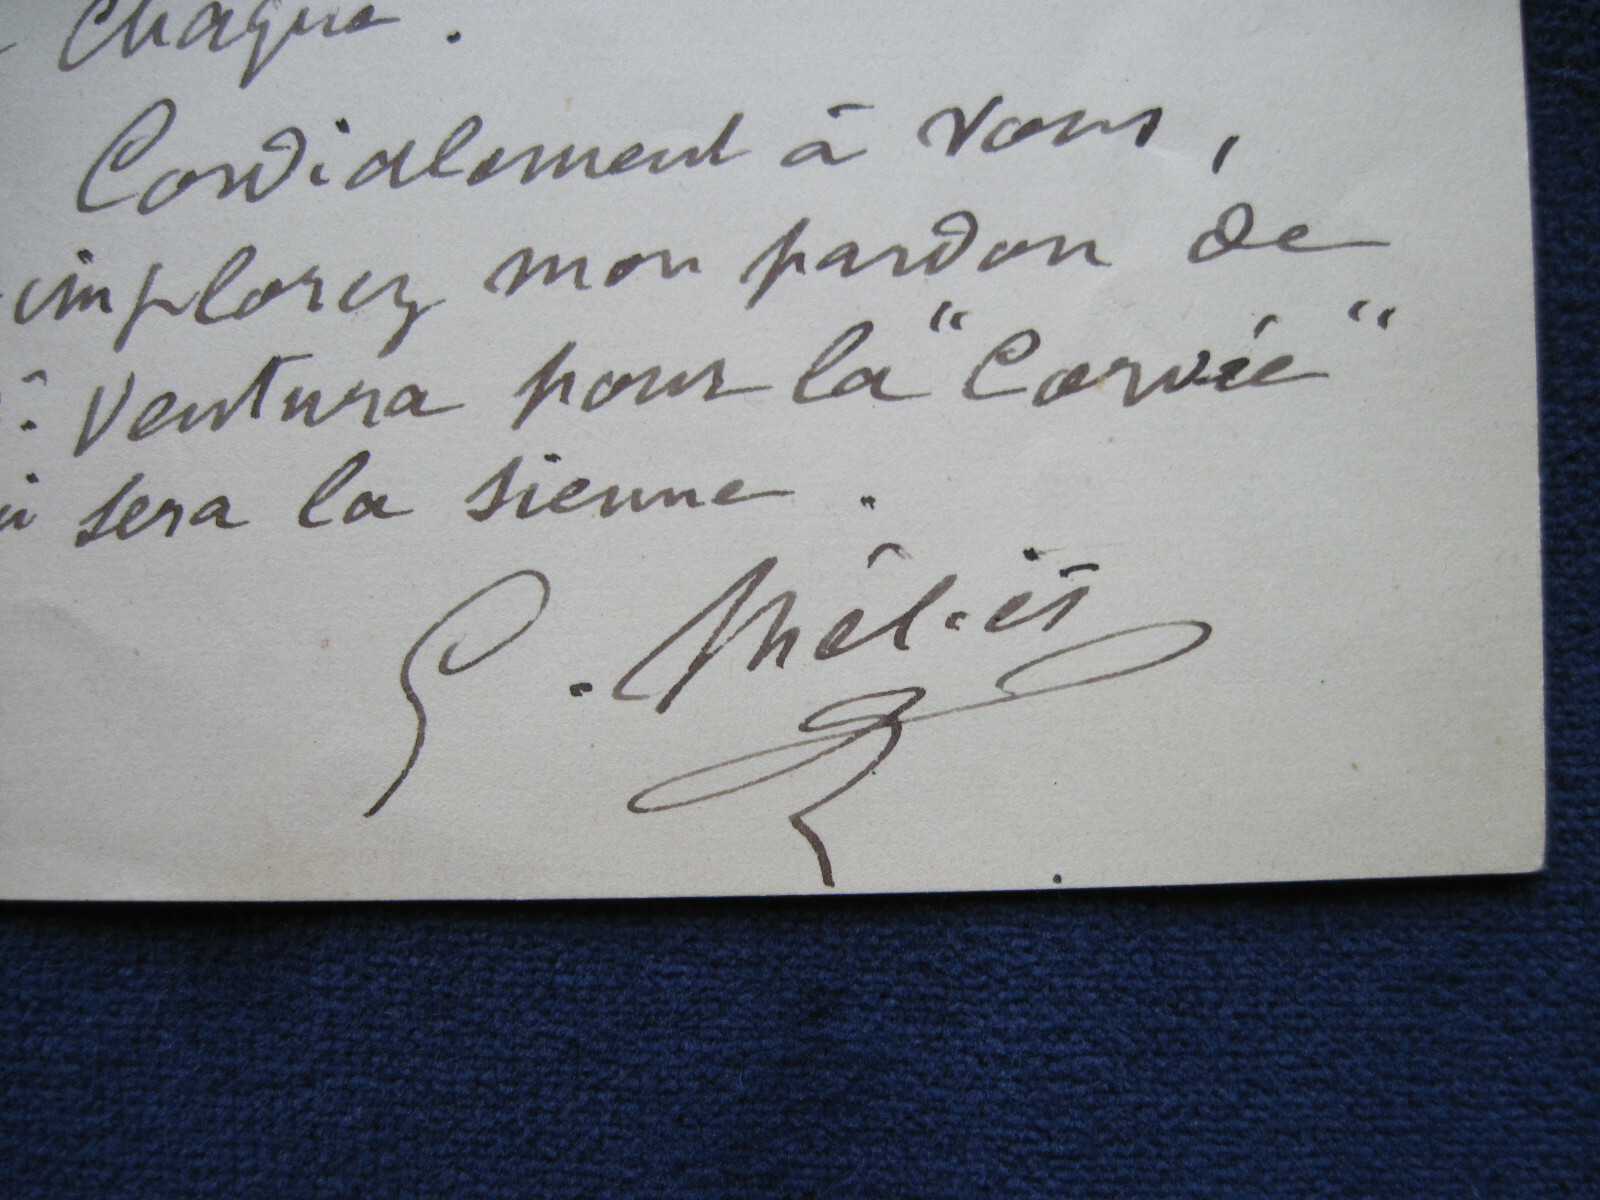 chaque.
Cordialement à vous,
implorez mon pardon de
Ventura pour la "Corvée"
sera la sienne.
G. Méliès